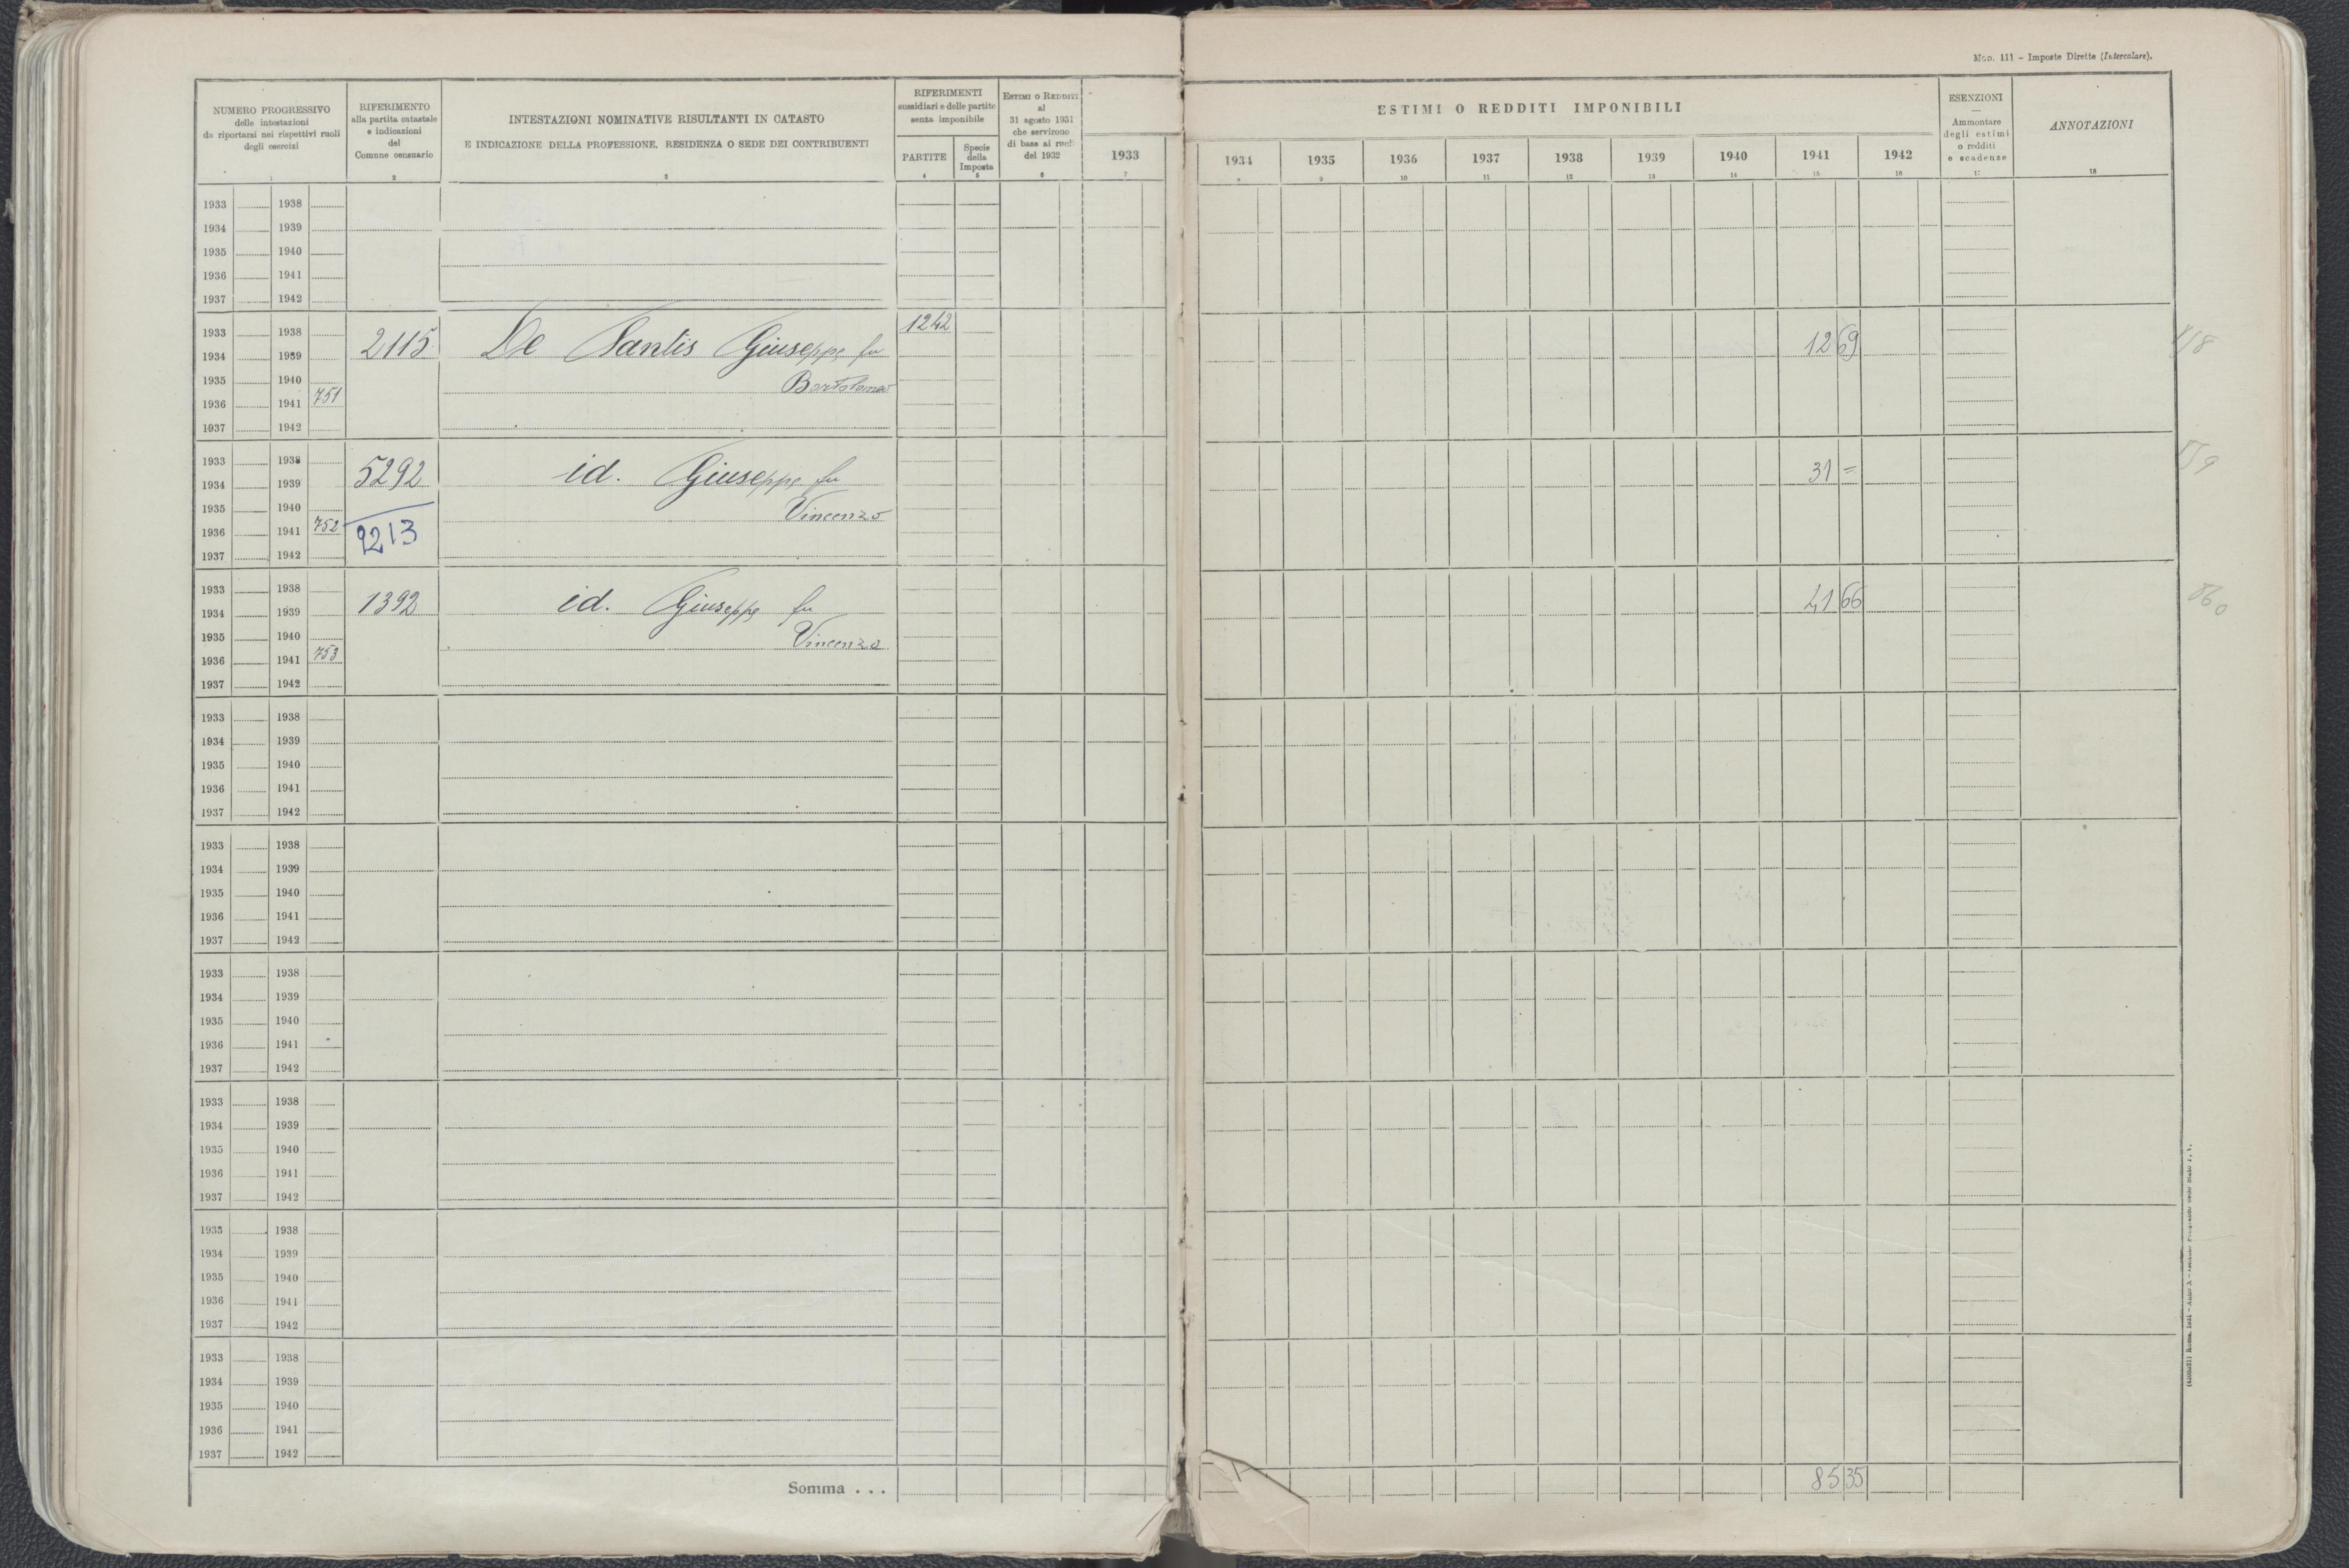 Mod. 111 - Imposte Dirette (Intercalare).
NUMERO PROGRESSIVO
delle intestazioni
da riportarsi nei rispettivi ruoli
degli esercizi
1
RIFERIMENTO
alla partita catastale
e indicazioni
del
Comune censuario
2
INTESTAZIONI NOMINATIVE RISULTANTI IN CATASTO
E INDICAZIONE DELLA PROFESSIONE, RESIDENZA O SEDE DEI CONTRIBUENTI
3
RIFERIMENTI
sussidiari e delle partite
senza imponibile
PARTITE
4
Specie
della
Imposta
5
ESTIMI O REDDITI
al
31 agosto 1931
che servirono
di base ai ruoli
del 1932
6
ESTIMI O REDDITI IMPONIBILI
1933 1934 1935 1936 1937 1938 1939 1940 1941 1942
7 8 9 10 11 12 13 14 15 16
ESENZIONI
Ammontare
degli estimi
o redditi
e scadenze
17
ANNOTAZIONI
18
1933 1938
1934 1939
1935 1940
1936 1941
1937 1942
1933 1938 1242
1934 1939 2115 De Santis Giuseppe fu 12 69
1935 1940 Bartolomeo
1936 1941 751
1937 1942
1933 1938
1934 1939 5292 id. Giuseppe fu 31 =
1935 1940 Vincenzo
1936 1941 752 2213
1937 1942
1933 1938
1934 1939 1392 id. Giuseppe fu 41 66
1935 1940 Vincenzo
1936 1941 753
1937 1942
1933 1938
1934 1939
1935 1940
1936 1941
1937 1942
1933 1938
1934 1939
1935 1940
1936 1941
1937 1942
1933 1938
1934 1939
1935 1940
1936 1941
1937 1942
1933 1938
1934 1939
1935 1940
1936 1941
1937 1942
1933 1938
1934 1939
1935 1940
1936 1941
1937 1942
1933 1938
1934 1939
1935 1940
1936 1941
1937 1942
Somma . . . 85 35